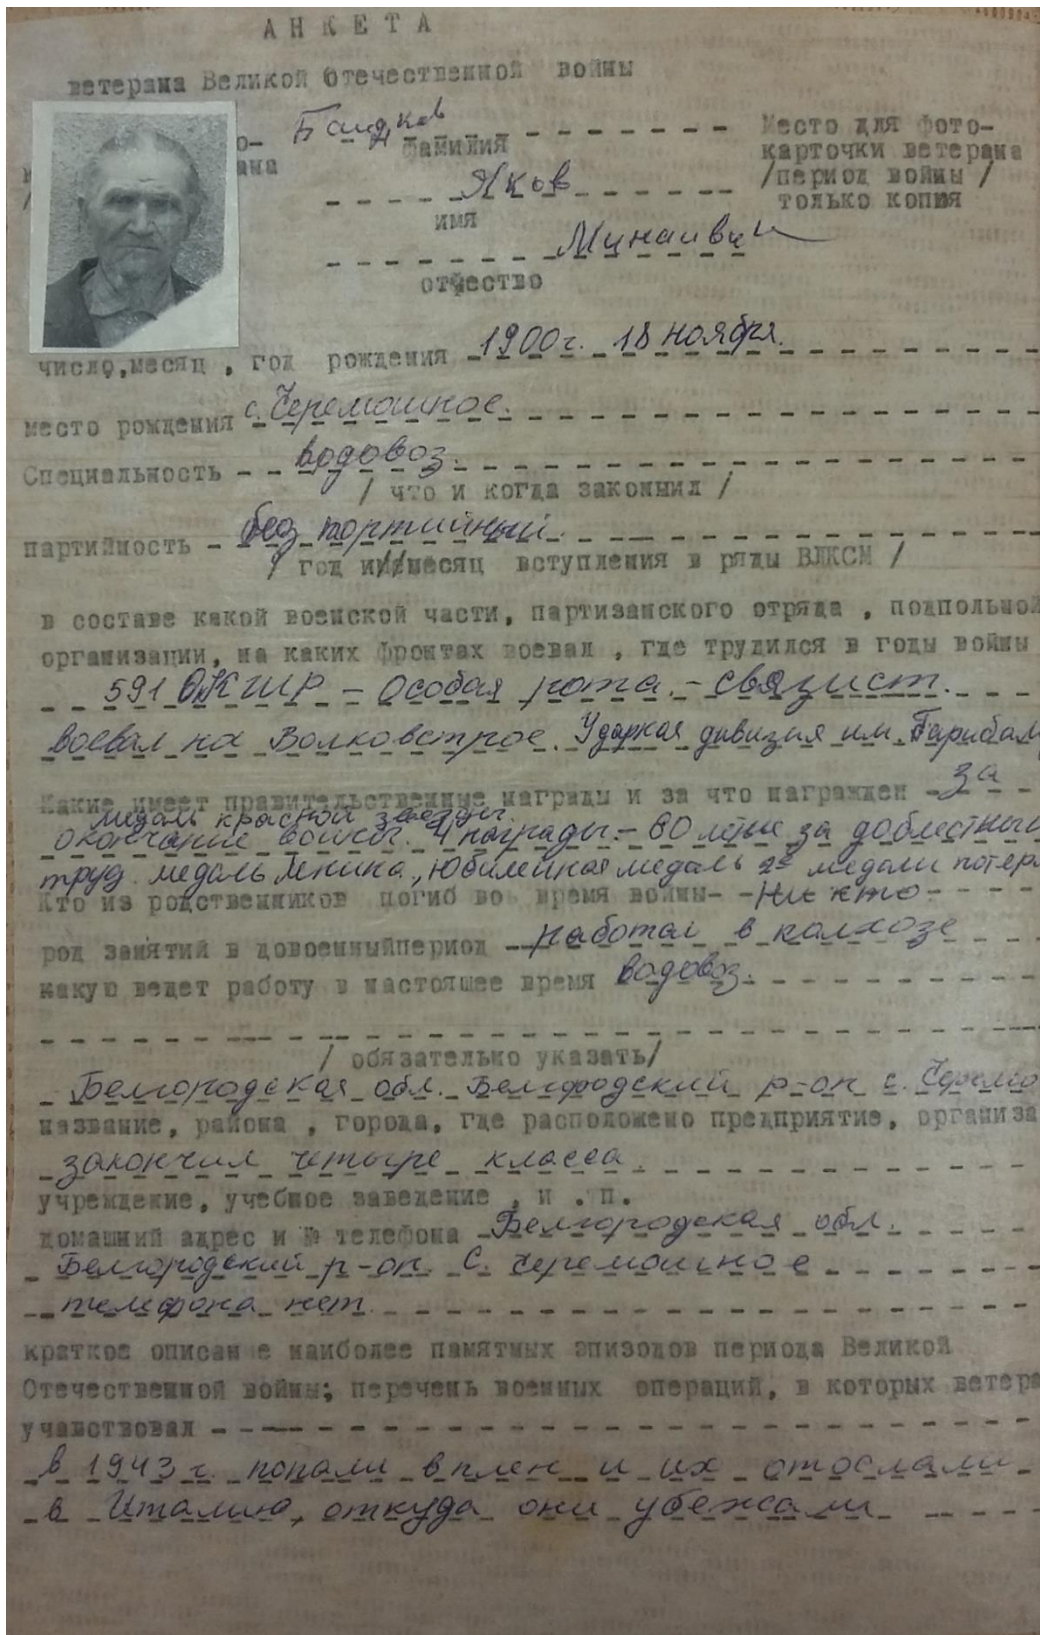 АНКЕТА
ветерана Великой Отечественной войны
о- Место для фото-
фамилия карточки ветерана
Яков /период войны /
имя только копия
Минаивич
отчество
число,месяц , год рождения 1900г. 18 ноября.
место рождения с. Черемошное.
Специальность водовоз.
/ что и когда закончил /
партийность без портийный.
/ год и месяц вступления в ряды ВЛКСМ /
в составе какой воинской части, партизанского отряда , подпольной
организации, на каких фронтах воевал , где трудился в годы войны
591 ОКШР – Особая рота – связист.
воевал на Волховстрое. Ударная дивизия им. Гарибаль
Какие имеет правительственные награды и за что награжден за
медаль красной звезды.
окончание войны. 4 награды – 60 летие за доблестный
труд. медаль Ленина, Юбилейная медаль 2е медали потер
Кто из родственников погиб во время войны- Ни кто
род занятий в довоенныйпериод работал в колхозе
какую ведет работу в настоящее время водовоз.
/ обязательно указать/
Белгородская обл. Белгородский р-он с. Черемо
название, района , города, где расположено предприятие, организа
закончил четыре класса.
учреждение, учебное заведение , и . п.
домашний адрес и № телефона Белгородская обл.
Белгородский р-он. С. Черемошное
телефона нет.
краткое описан е наиболее памятных эпизодов периода Великой
Отечественной войны; перечень военных операций, в которых ветера
учавствовал
в 1943 г. попали в плен и их отослали
в Италию, откуда они убежали